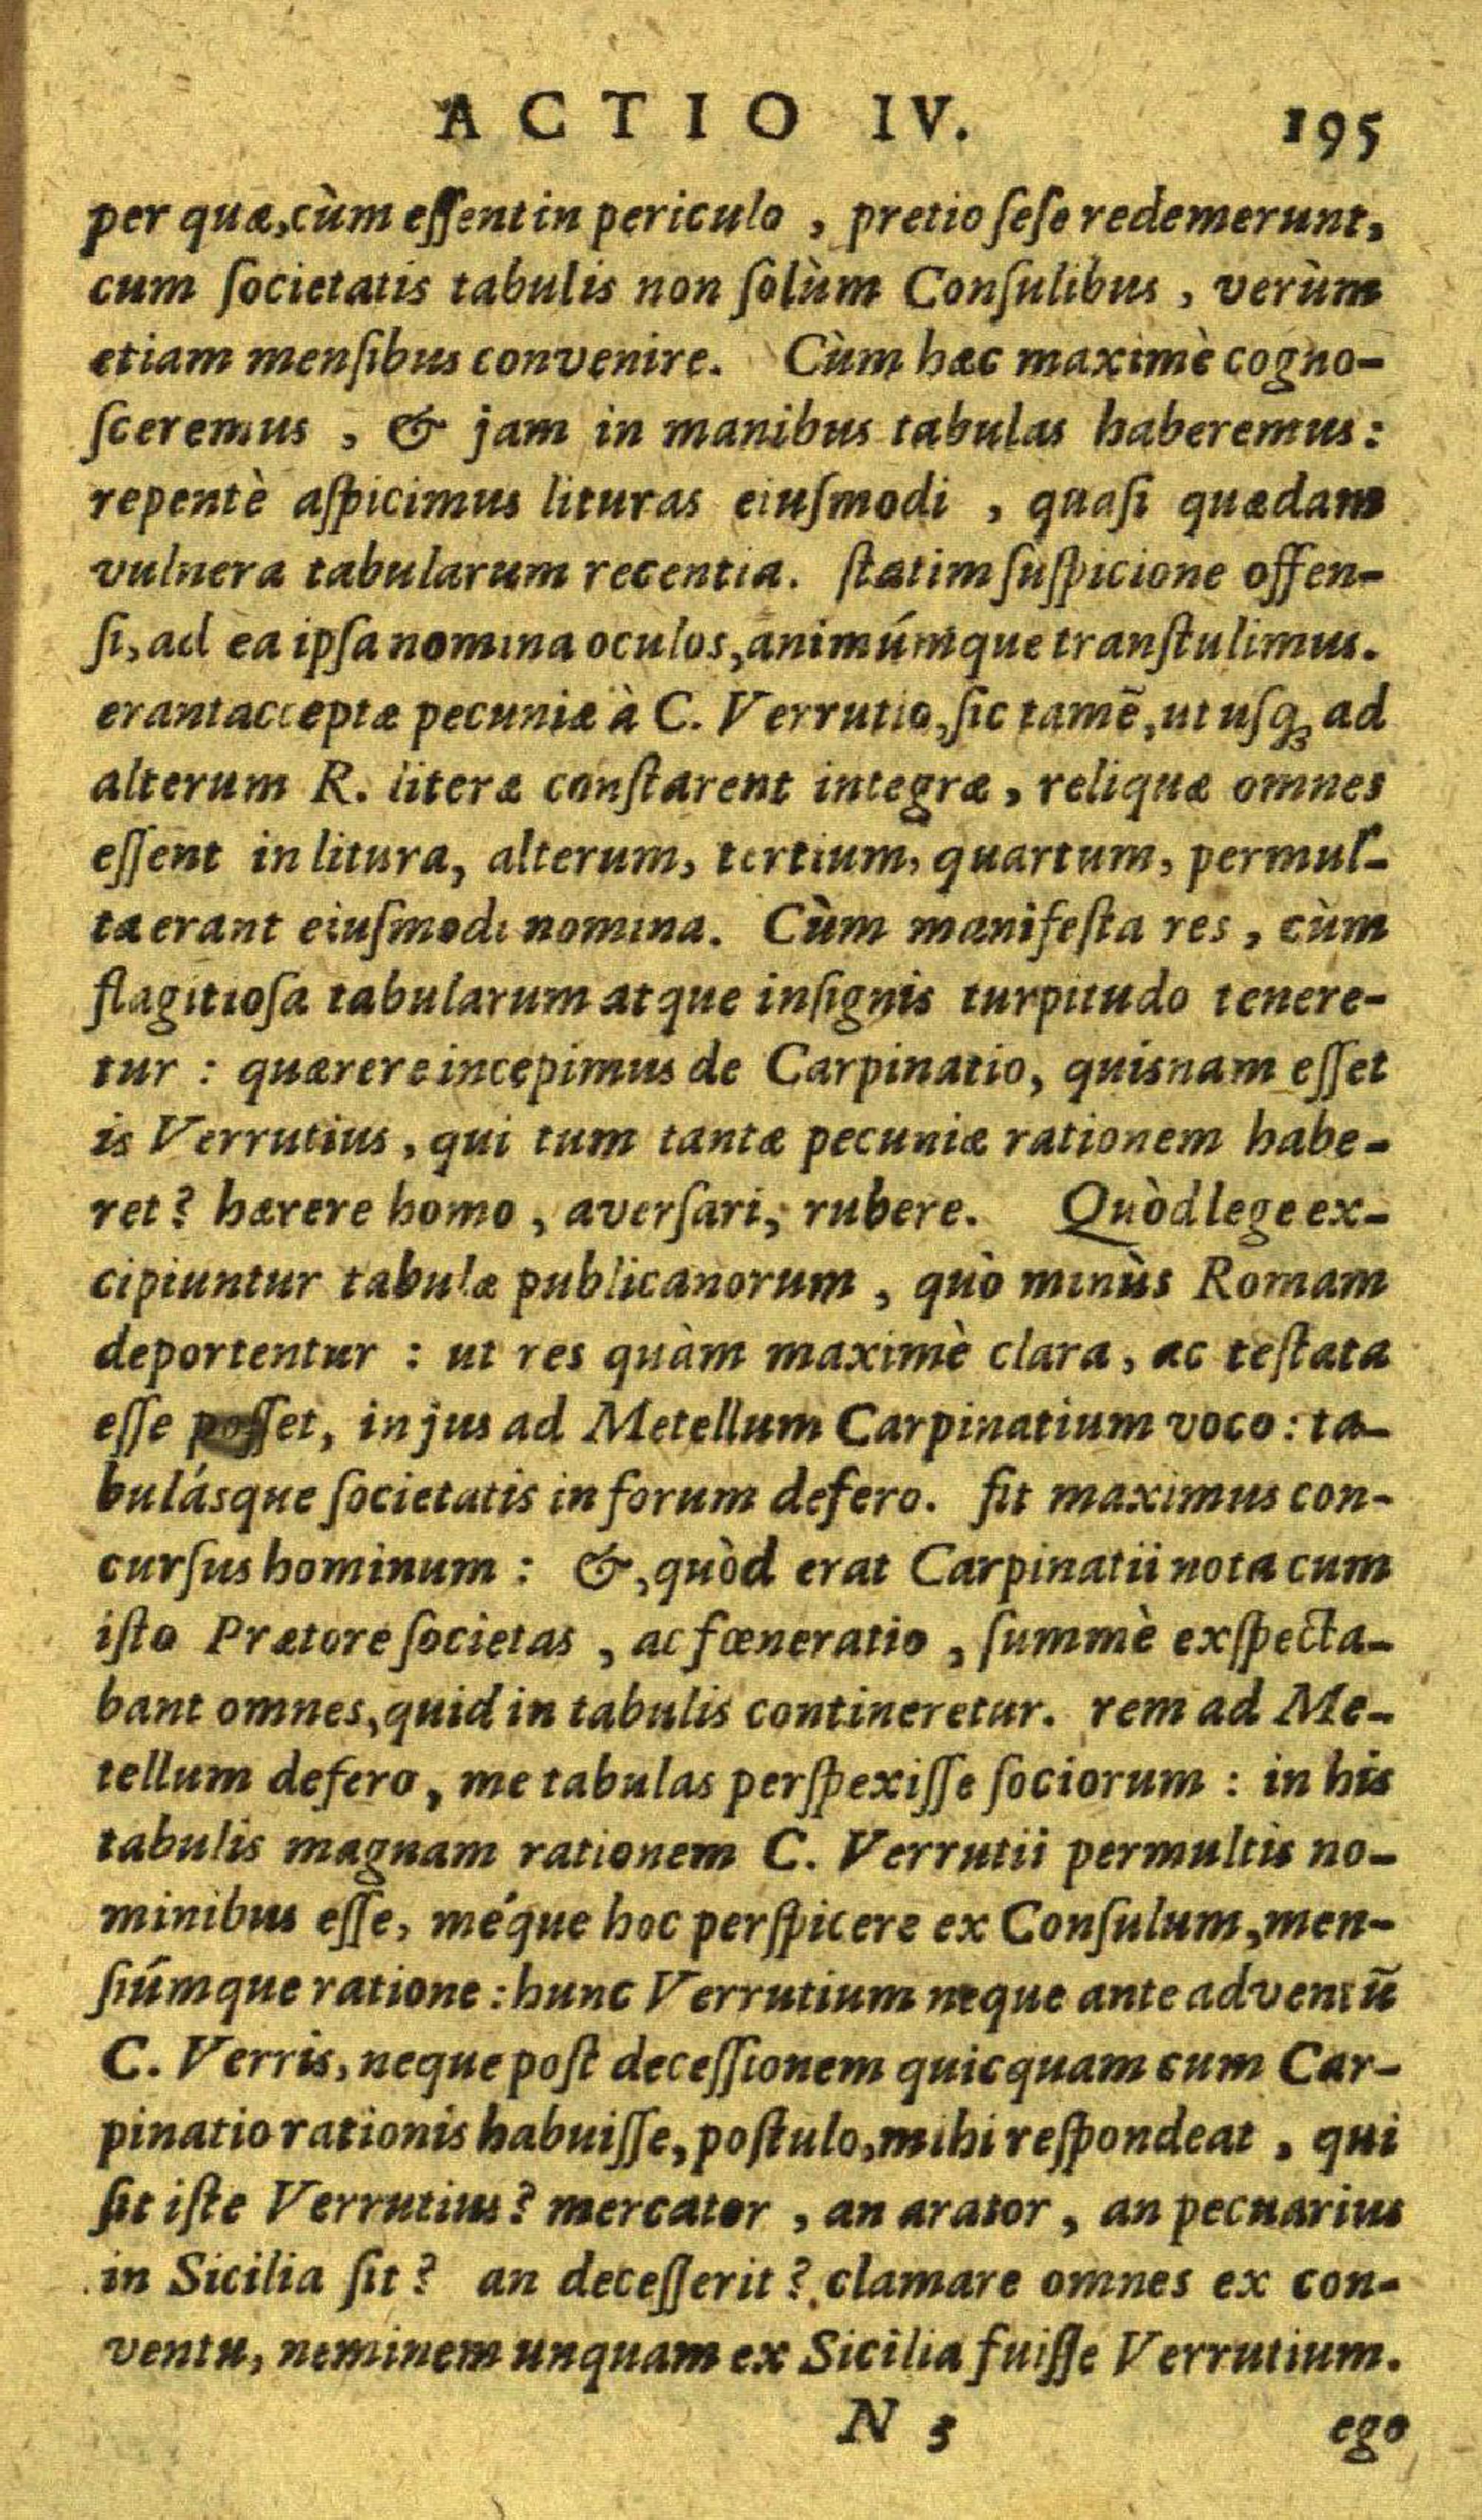 ACTIO IV. 195
per quæ, cùm eſſent in periculo, pretio ſeſe redemerunt,
cum ſocietatis tabulis non ſolùm Conſulibus, verùm
etiam menſibus convenire. Cùm hæc maximè cogno-
ſceremus, & jam in manibus tabulas haberemus:
repentè aſpicimus lituras eiuſmodi, quaſi quædam
vulnera tabularum recentia. ſtatim ſuſpicione offen-
ſi, ad ea ipſa nomina oculos, animúmque tranſtulimus.
erant acceptæ pecuniæ à C. Verrutio, ſic tamẽ, ut uſq; ad
alterum R. literæ conſtarent integræ, reliquæ omnes
eſſent in litura, alterum, tertium, quartum, permul-
ta erant eiuſmodi nomina. Cùm manifeſta res, cùm
flagitioſa tabularum atque inſignis turpitudo tenere-
tur: quærere incepimus de Carpinatio, quisnam eſſet
is Verrutius, qui tum tantæ pecuniæ rationem habe-
ret? hærere homo, averſari, rubere. Quòd lege ex-
cipiuntur tabulæ publicanorum, quò minùs Romam
deportentur: ut res quàm maximè clara, ac teſtata
eſſe poſſet, in jus ad Metellum Carpinatium voco: ta-
bulásque ſocietatis in forum defero. fit maximus con-
curſus hominum: &, quòd erat Carpinatii nota cum
iſto Prætore ſocietas, ac fœneratio, ſummè exſpecta-
bant omnes, quid in tabulis contineretur. rem ad Me-
tellum defero, me tabulas perſpexiſſe ſociorum: in his
tabulis magnam rationem C. Verrutii permultis no-
minibus eſſe, méque hoc perſpicere ex Conſulum, men-
ſiúmque ratione: hunc Verrutium neque ante adventũ
C. Verris, neque poſt deceſſionem quicquam cum Car-
pinatio rationis habuiſſe, poſtulo, mihi reſpondeat, qui
ſit iſte Verrutius? mercator, an arator, an pecuarius
in Sicilia ſit? an deceſſerit? clamare omnes ex con-
ventu, neminem unquam ex Sicilia fuiſſe Verrutium.
N 3 ego